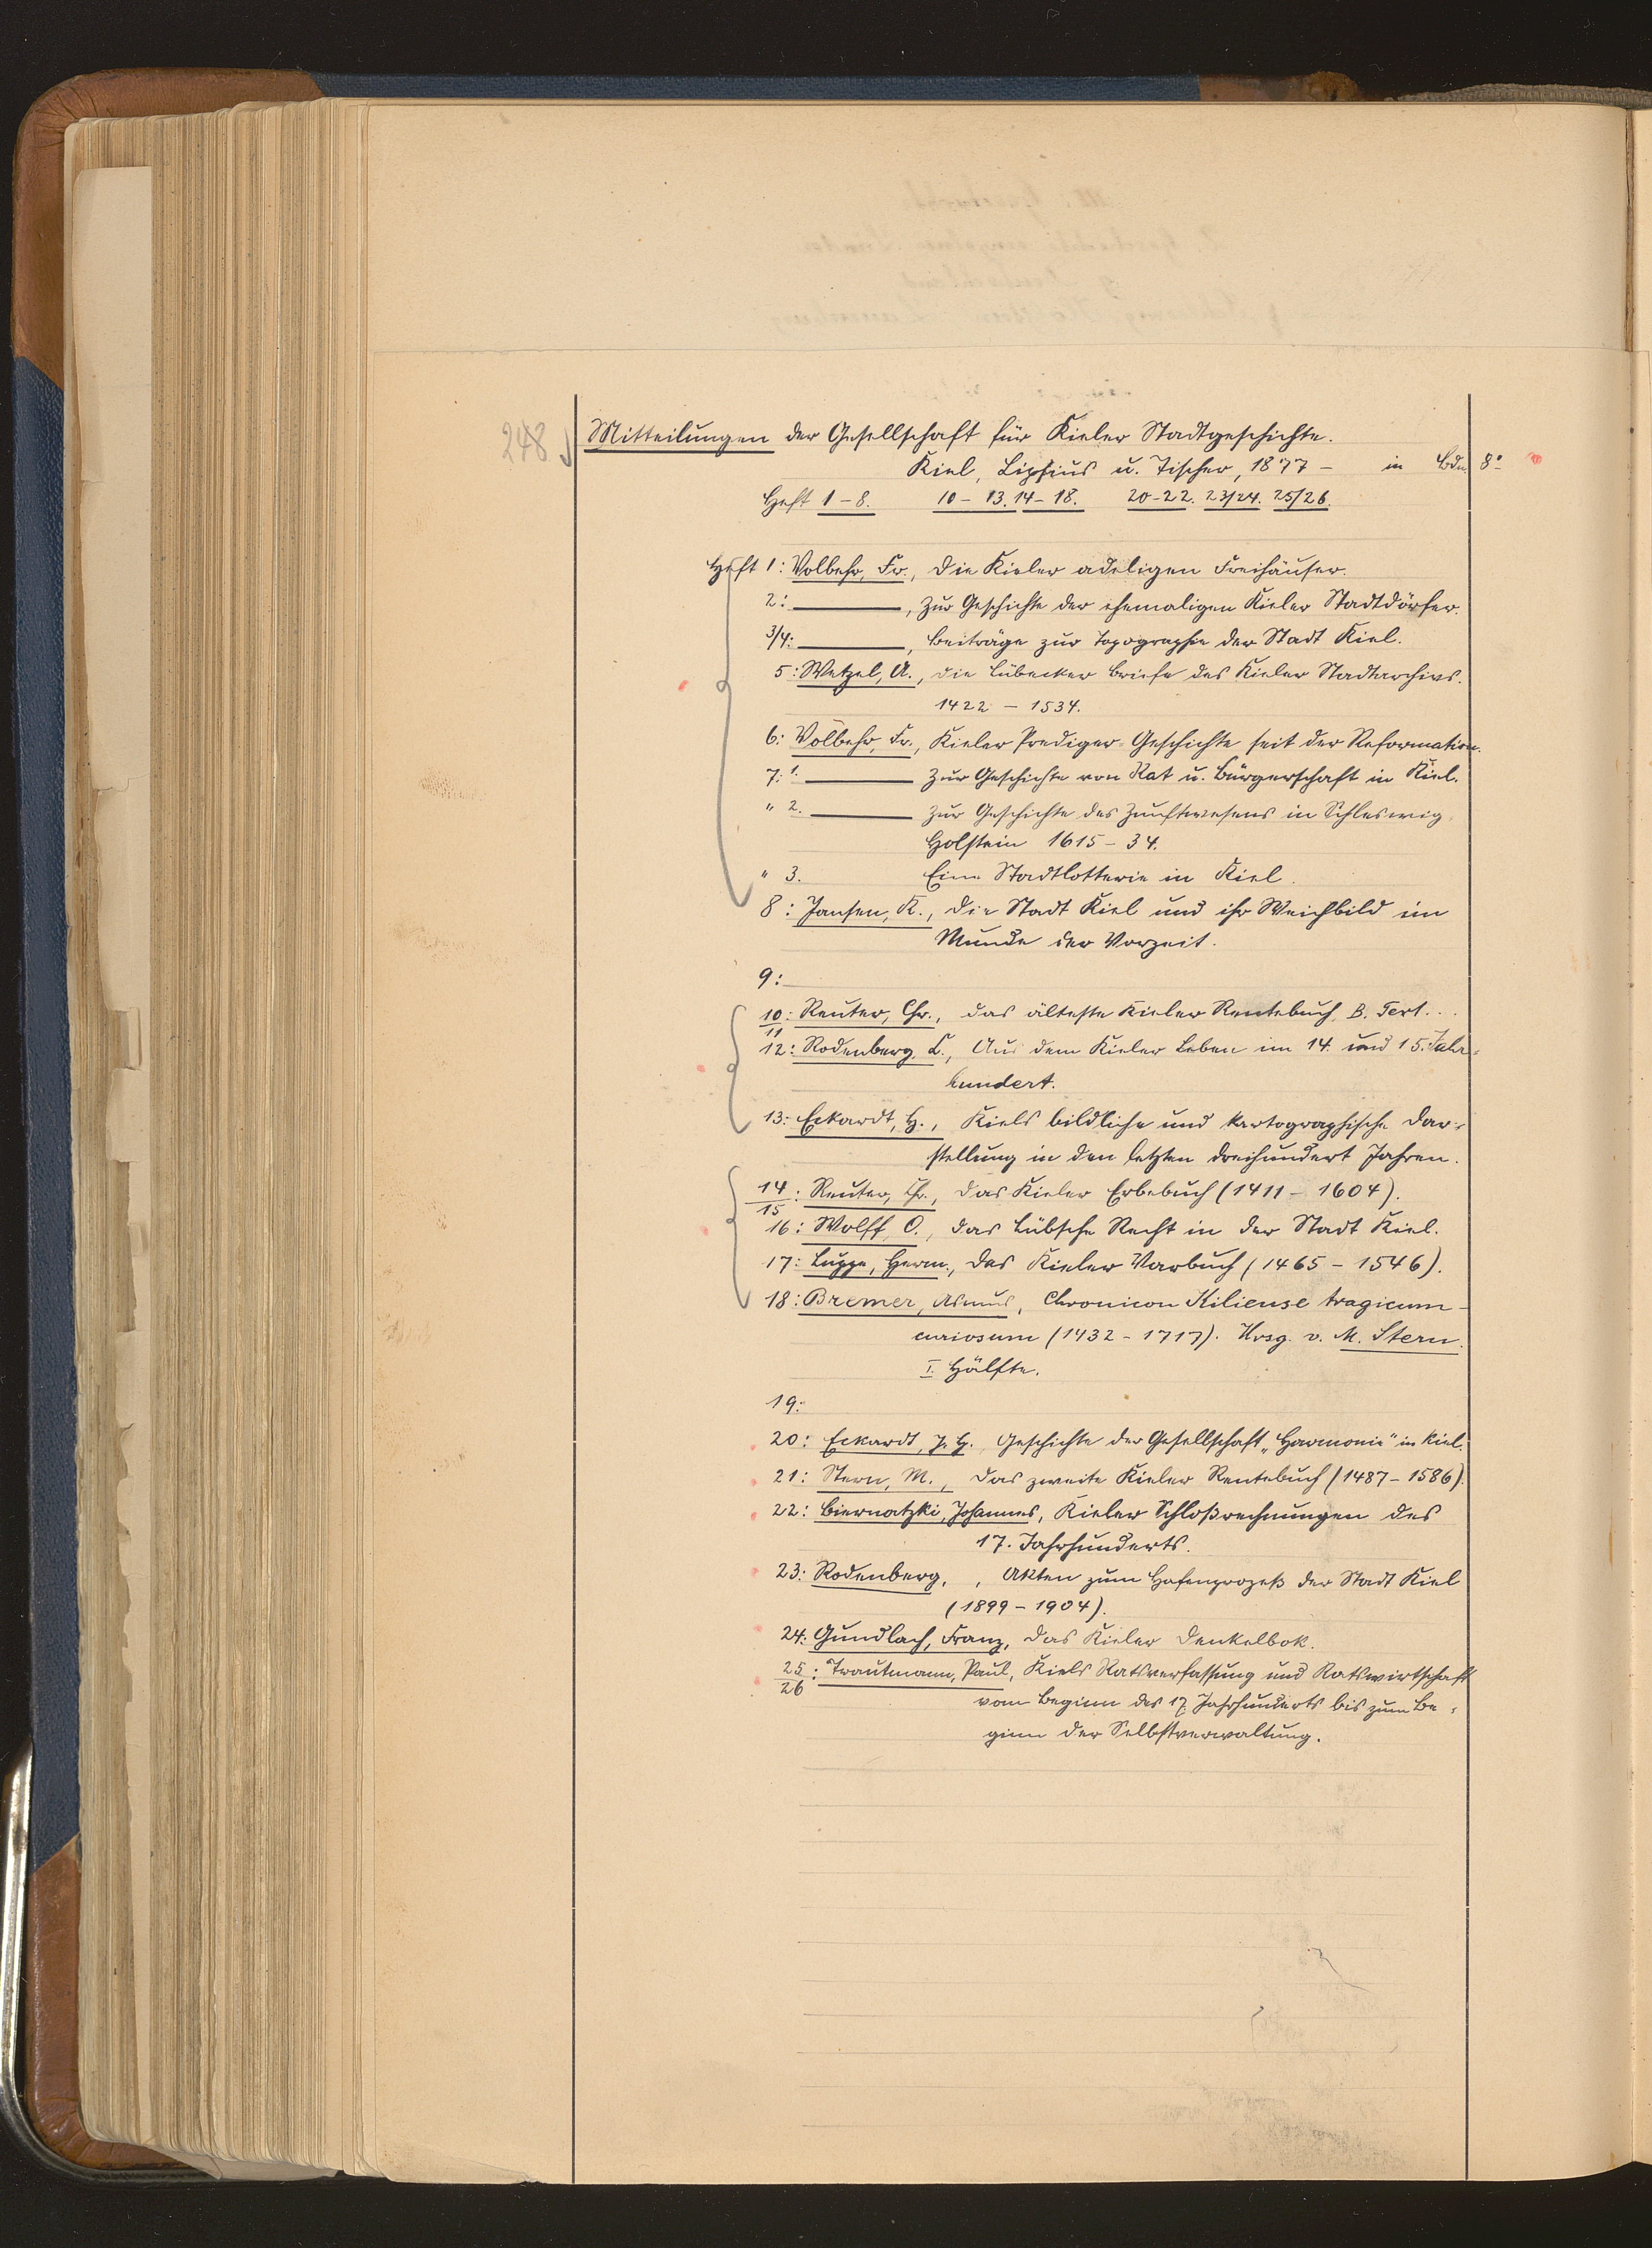 248
Mitteilungen der Gesellschaft für Kieler Stadtgeschichte.
Kiel, Lipsius u. Tischer, 1877 – in Bdn. 8°
Heft 1–8. 10–13. 14–18. 20–22. 23/24. 25/26.
Heft 1: Volbehr, Fr., Die Kieler adeligen Freihäuser.
2: ———, Zur Geschichte der ehemaligen Kieler Stadtdörfer.
3/4: ———, Beiträge zur Topographie der Stadt Kiel.
5: Wetzel, A., die Lübecker Briefe des Kieler Stadtarchivs.
1422 – 1534.
6: Volbehr, Fr., Kieler Prediger-Geschichte seit der Reformation.
7: 1. ——— Zur Geschichte von Rat u. Bürgerschaft in Kiel.
" 2. ——— Zur Geschichte des Zunftwesens in Schleswig-
Holstein 1615–34.
" 3. Eine Stadtlotterie in Kiel.
8: Jansen, K., Die Stadt Kiel und ihr Weichbild im
Munde der Vorzeit.
9:
10/11: Reuter, Chr., das älteste Kieler Rentebuch. B. Text...
12: Rodenberg, C., Aus dem Kieler Leben im 14. und 15. Jahr-
hundert.
13: Eckardt, H., Kiels bildliche und kartographische Dar-
stellung in den letzten dreihundert Jahren.
14/15: Reuter, Chr., das Kieler Erbebuch (1411 – 1604).
16: Wolff, O., das Lübsche Recht in der Stadt Kiel.
17: Luppe, Herm., das Kieler Varbuch (1465 – 1546).
18: Bremer, Asmus, Chronicon Kiliense tragicum-
curiosum (1432 – 1717). Hrsg. v. M. Stern.
I. Hälfte.
19:
20: Eckardt, J. H., Geschichte der Gesellschaft „Harmonie" in Kiel.
21: Stern, M., Das zweite Kieler Rentebuch (1487 – 1586).
22: Biernatzki, Johannes, Kieler Schloßrechnungen des
17. Jahrhunderts.
23: Rodenberg, , Akten zum Hafenprozeß der Stadt Kiel
(1899 – 1904).
24: Gundlach, Franz, Das Kieler Denkelbok.
25/26: Trautmann, Paul, Kiels Ratsverfassung und Ratswirtschaft
vom Beginn des 17. Jahrhunderts bis zum Be-
ginn der Selbstverwaltung.